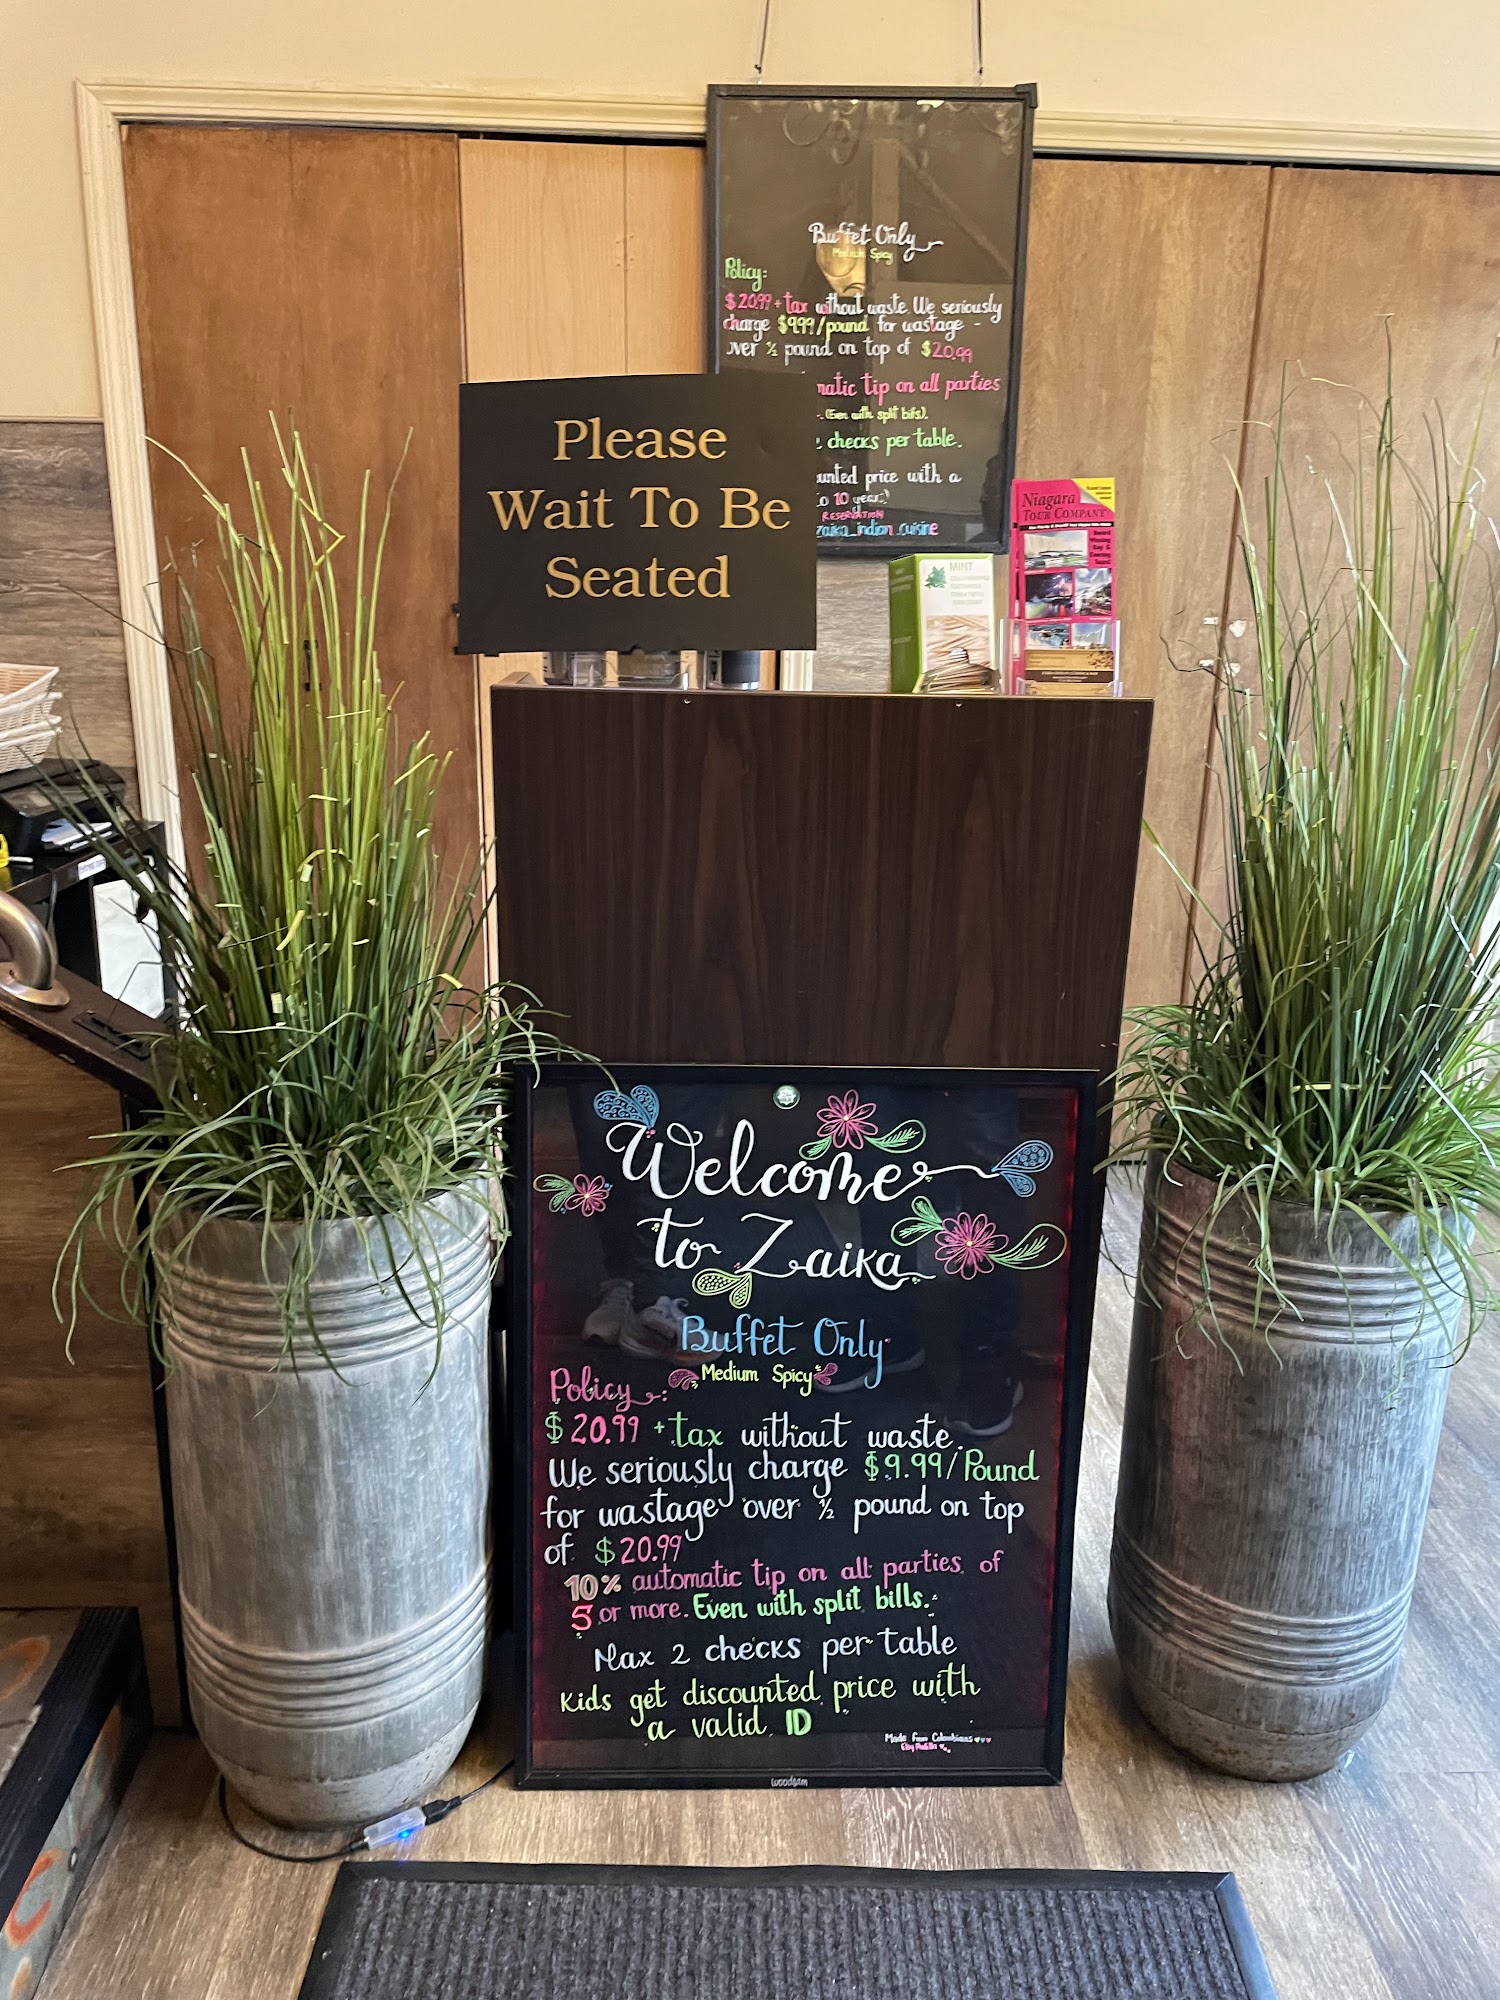 Buffet Only
Medium Spicy
Policy:
$20.99 + tax without waste. We seriously
charge $9.99/pound for wastage -
over ½ pound on top of $20.99
matic tip on all parties
(Even with split bills).
checks per table.
ounted price with a
to 10 year:)
RESERVATION
zaika_indian_cuisine
Please
Wait To Be
Seated
MINT
Niagara
TOUR COMPANY
Welcome
to Zaika
Buffet Only
Medium Spicy
Policy:
$20.99 + tax without waste.
We seriously charge $9.99/Pound
for wastage over ½ pound on top
of $20.99
10% automatic tip on all parties of
5 or more. Even with split bills.
Max 2 checks per table
Kids get discounted price with
a valid ID
Made From Colombians
woodsam